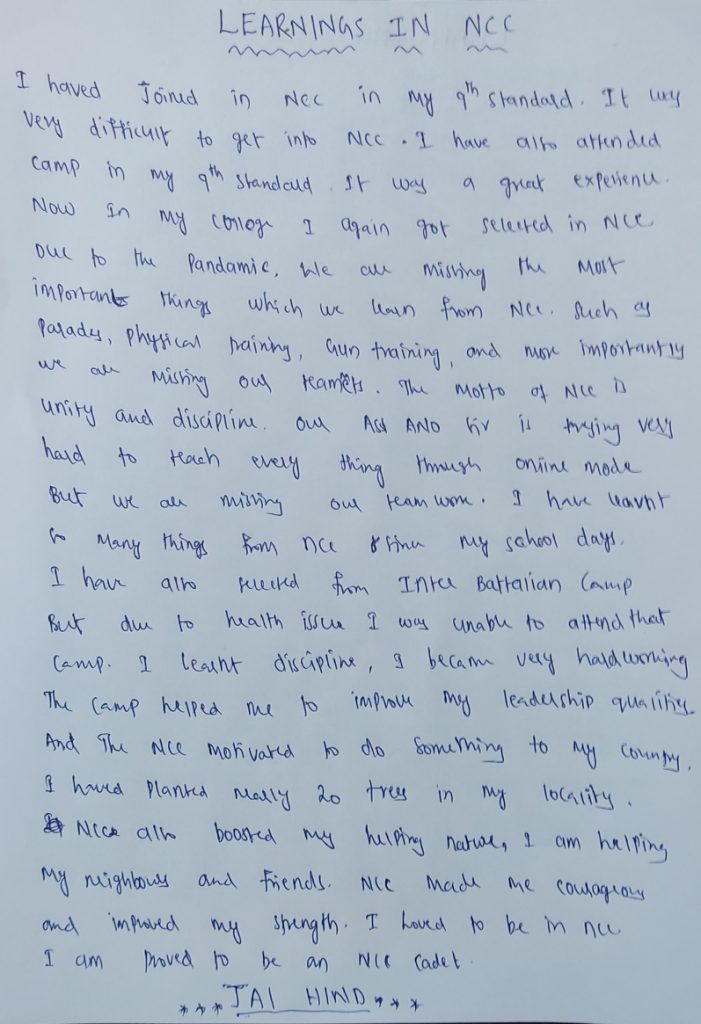 LEARNINGS IN NCC
I haved Joined in NCC in my 9th standard. It was
very difficult to get into NCC. I have also attended
camp in my 9th standard. It was a great experience.
Now in my college I again got selected in NCC
Due to the Pandamic, We are missing the most
important things which we learn from NCC. Such as
parades, physical training, Gun training, and more importantly
we are missing our teamets. The motto of NCC is
unity and discipline. our Ass ANO sir is trying very
hard to teach every thing through online mode
But we are missing our team work. I have learnt
so many things from NCC since my school days.
I have also selected from Inter Battalian Camp
But due to health issue I was unable to attend that
camp. I learnt discipline, I became very hardworking
The camp helped me to improve my leadership qualities.
And The NCC motivated to do something to my country.
I haved planted nearly 20 trees in my locality.
NCC also boosted my helping nature, I am helping
my neighbours and friends. NCC made me courageous
and improved my strength. I loved to be in NCC
I am proved to be an NCC cadet.
***JAI HIND***